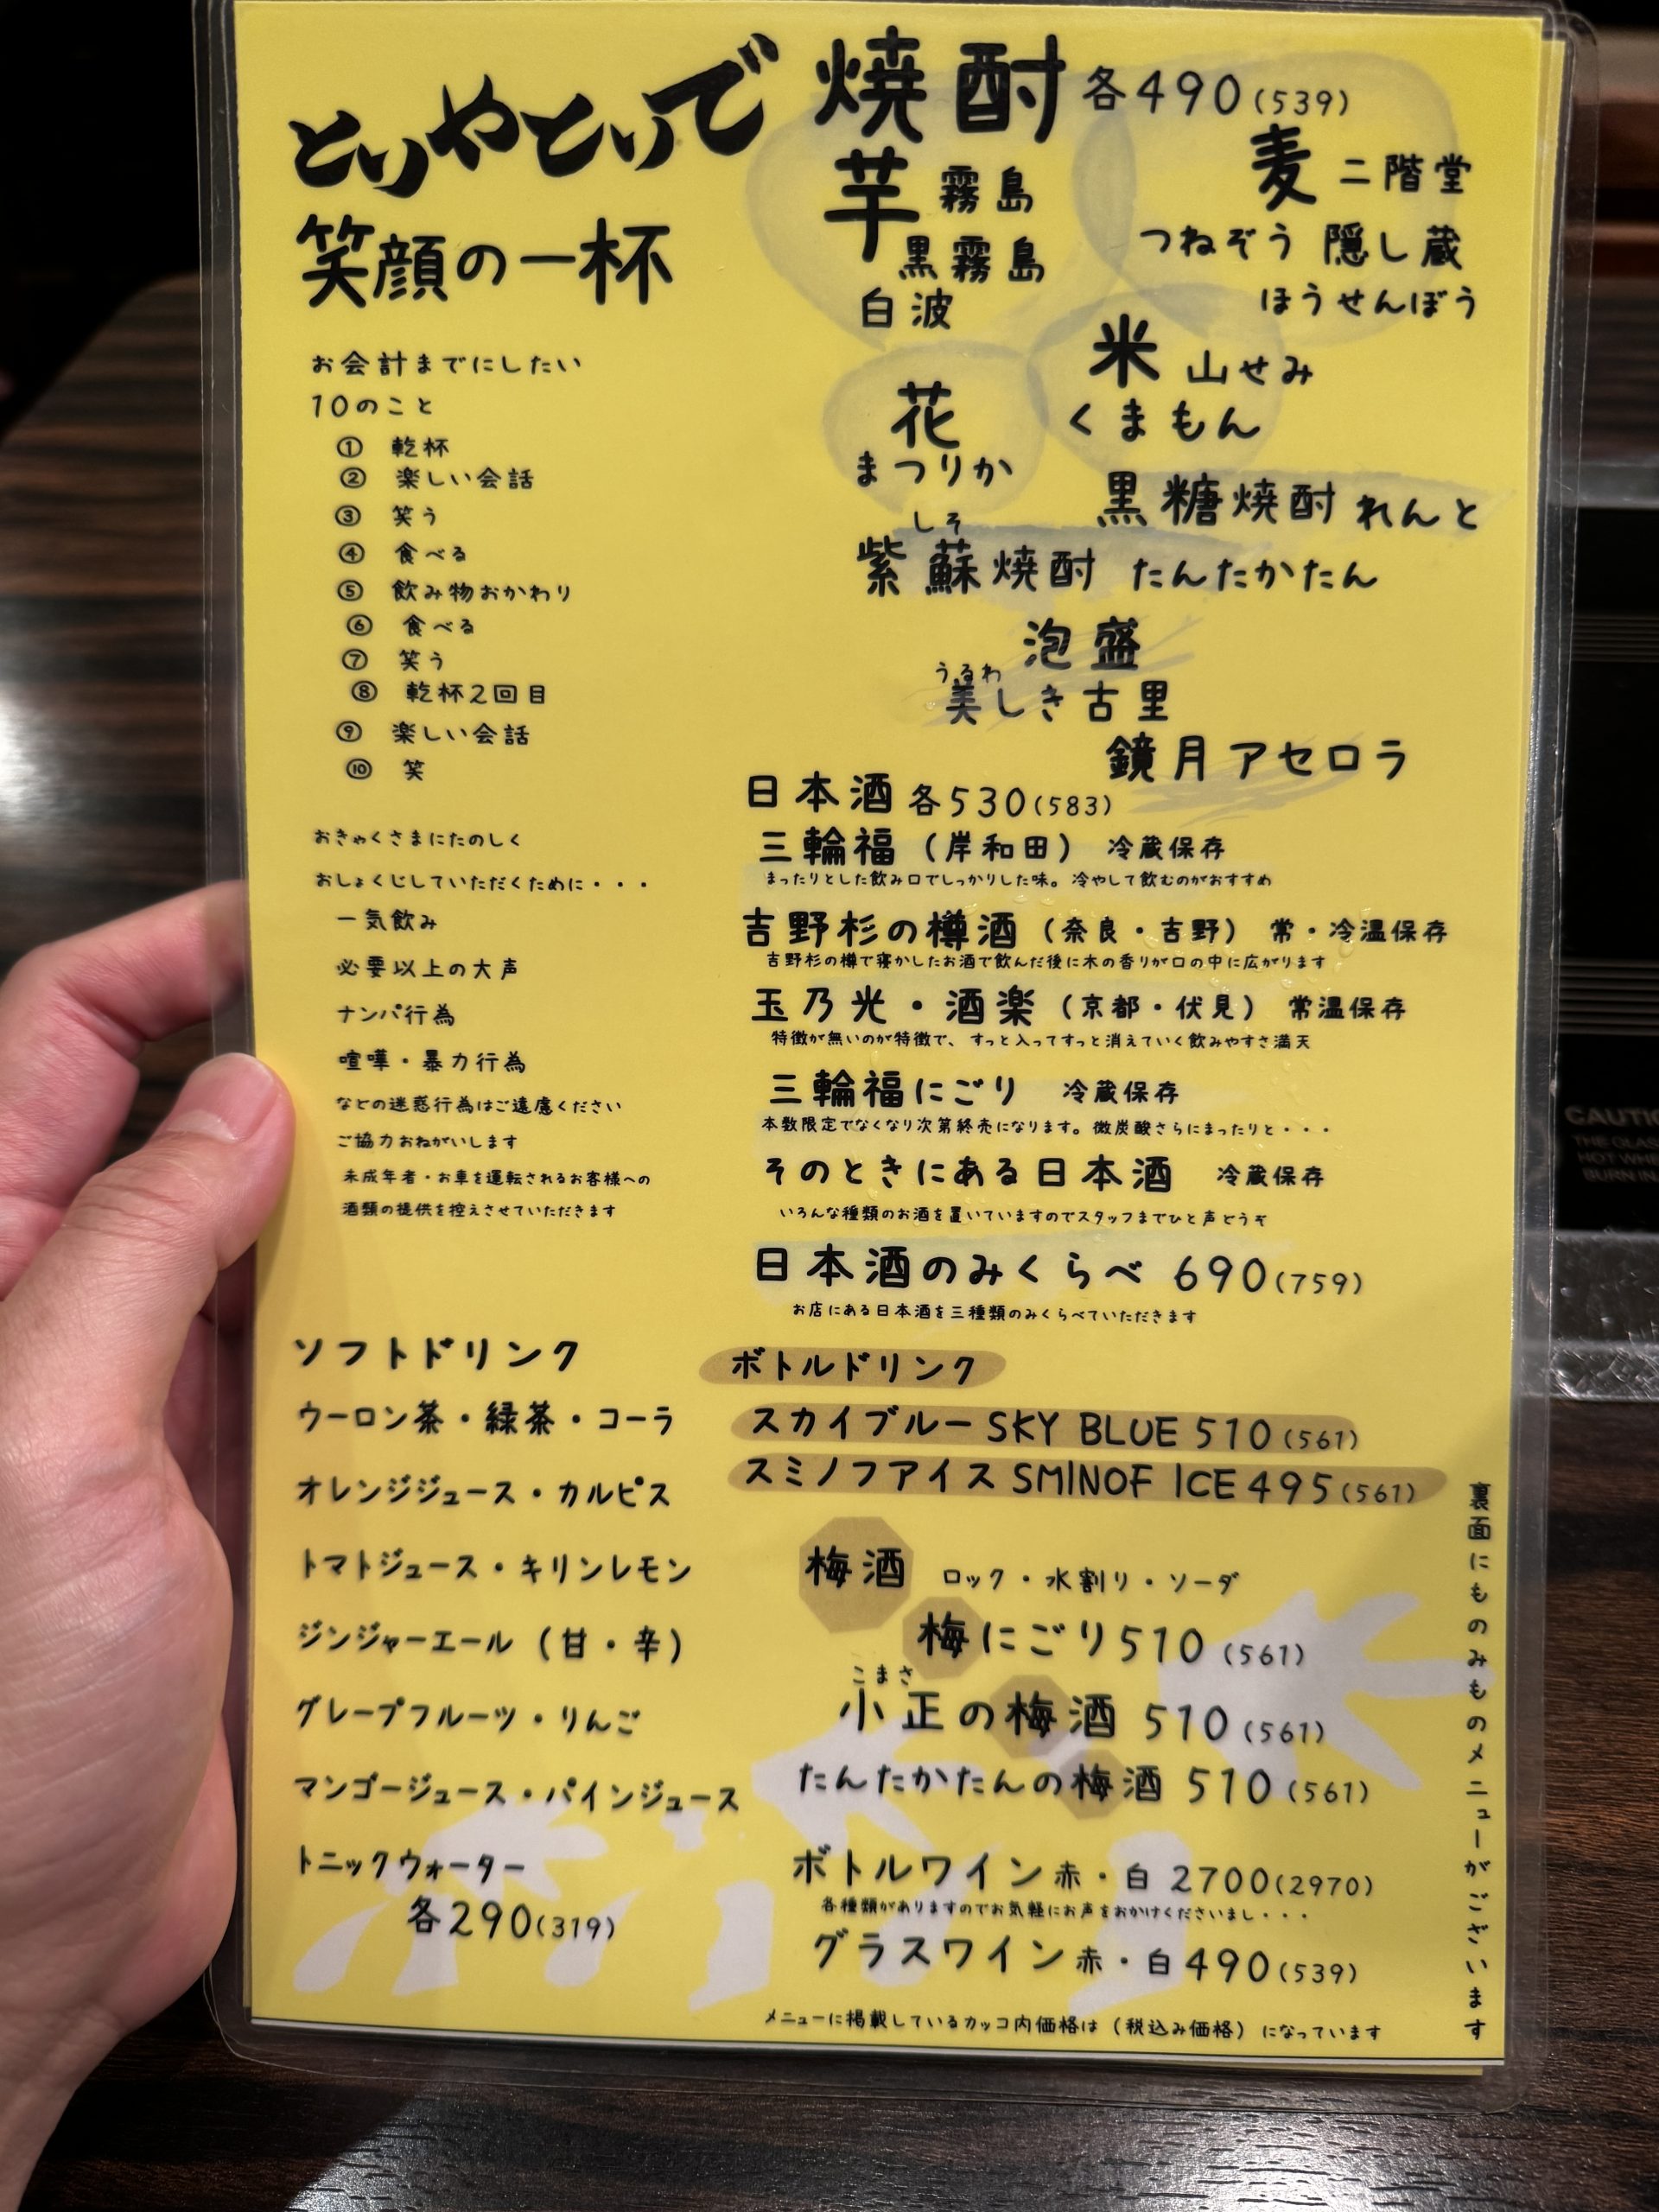 とりやとりで
笑顔の一杯
お会計までにしたい
10のこと
① 乾杯
② 楽しい会話
③ 笑う
④ 食べる
⑤ 飲み物おかわり
⑥ 食べる
⑦ 笑う
⑧ 乾杯2回目
⑨ 楽しい会話
⑩ 笑
おきゃくさまにたのしく
おしょくじしていただくために・・・
一気飲み
必要以上の大声
ナンパ行為
喧嘩・暴力行為
などの迷惑行為はご遠慮ください
ご協力おねがいします
未成年者・お車を運転されるお客様への
酒類の提供を控えさせていただきます
ソフトドリンク
ウーロン茶・緑茶・コーラ
オレンジジュース・カルピス
トマトジュース・キリンレモン
ジンジャーエール（甘・辛）
グレープフルーツ・りんご
マンゴージュース・パインジュース
トニックウォーター
各290(319)
焼酎 各490(539)
芋 霧島
黒霧島
白波
麦 二階堂
つねぞう 隠し蔵
ほうせんぼう
米 山せみ
くまもん
花
まつりか
黒糖焼酎 れんと
しそ
紫蘇焼酎 たんたかたん
泡盛
うるわ
美しき古里
鏡月アセロラ
日本酒 各530(583)
三輪福（岸和田） 冷蔵保存
まったりとした飲み口でしっかりした味。冷やして飲むのがおすすめ
吉野杉の樽酒（奈良・吉野） 常・冷温保存
吉野杉の樽で寝かしたお酒で飲んだ後に木の香りが口の中に広がります
玉乃光・酒楽（京都・伏見） 常温保存
特徴が無いのが特徴で、すっと入ってすっと消えていく飲みやすさ満天
三輪福にごり 冷蔵保存
本数限定でなくなり次第終売になります。微炭酸さらにまったりと・・・
そのときにある日本酒 冷蔵保存
いろんな種類のお酒を置いていますのでスタッフまでひと声どうぞ
日本酒のみくらべ 690(759)
お店にある日本酒を三種類のみくらべていただきます
ボトルドリンク
スカイブルー SKY BLUE 510(561)
スミノフアイス SMINOF ICE 495(561)
梅酒 ロック・水割り・ソーダ
梅にごり510(561)
こまさ
小正の梅酒 510(561)
たんたかたんの梅酒 510(561)
ボトルワイン赤・白 2700(2970)
各種類がありますのでお気軽にお声をおかけくださいまし・・・
グラスワイン赤・白490(539)
メニューに掲載しているカッコ内価格は（税込み価格）になっています
裏面にものみものメニューがございます
CAUTIO
THE GLAS
HOT WHE
BURN IN